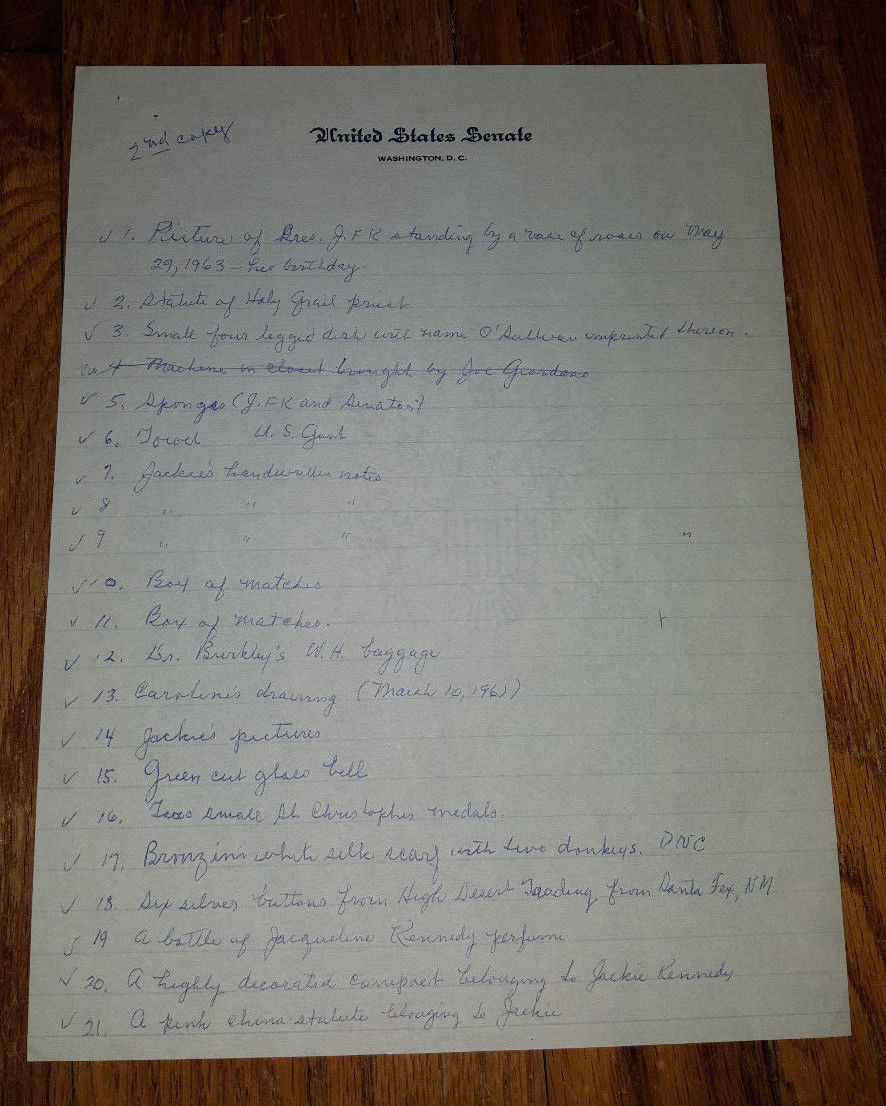 2nd copy
United States Senate
WASHINGTON, D. C.
✓ 1. Picture of Pres. J.F K standing by a vase of roses on May
29, 1963 – his birthday.
✓ 2. Statute of Holy Grail priest
✓ 3. Small four legged dish with name O'Sullivan imprinted thereon.
4 Machine in closet brought by Joe Giordano
✓ 5. Sponges (J.FK and Senator)
✓ 6. Towel U.S. Govt
✓ 7. Jackie's handwritten notes
✓ 8 " " "
✓ 9 " " "
✓ 10. Box of matches
✓ 11. Box of matches.
✓ 12. Dr. Burkley's W.H. baggage
✓ 13. Caroline's drawing (March 10, 1961)
✓ 14 Jackie's pictures
✓ 15. Green cut glass bell
✓ 16. Two small St Christopher medals.
✓ 17. Bronzini white silk scarf with two donkeys. DNC
✓ 18. Six silver buttons from High Desert Trading from Santa Fex, NM
✓ 19 A bottle of Jacqueline Kennedy perfume
✓ 20. A highly decorated compact belonging to Jackie Kennedy
✓ 21. A pink china statute belonging to Jackie